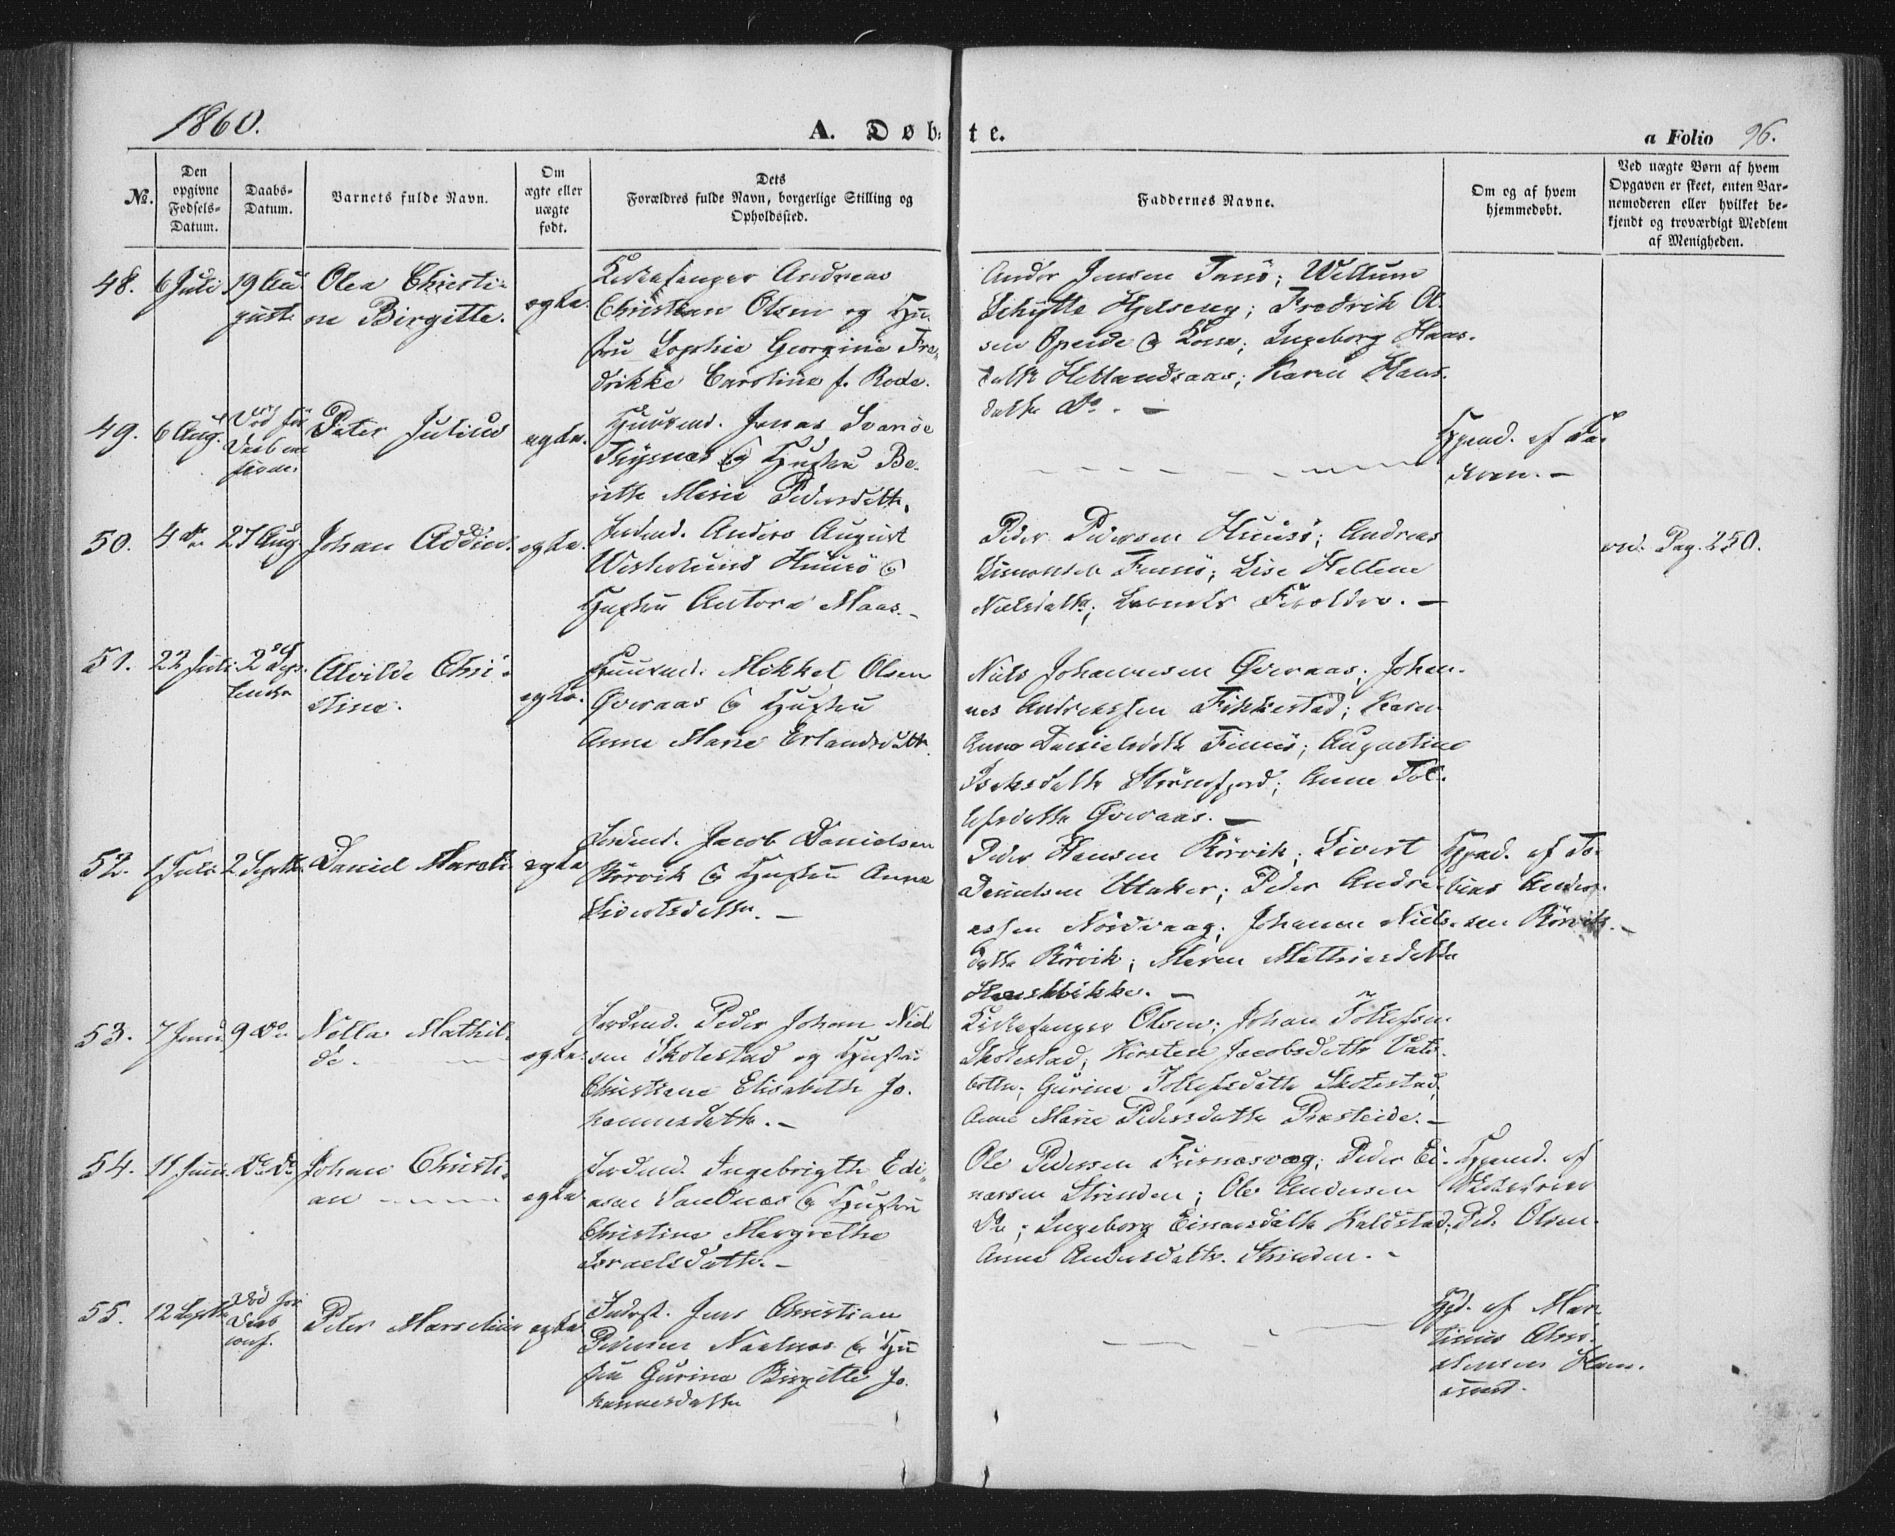 1860.
A. Døb-
te.
a Folio 96.
No.
Den opgivne Fødsels-Datum.
Daabs-Datum.
Barnets fulde Navn.
Om ægte eller uægte født.
Dets Forældres fulde Navn, borgerlige Stilling og Opholdssted.
Faddernes Navne.
Om og af hvem hjemmedøbt.
Ved uægte Børn af hvem Opgaven er skeet, enten Barnemoderen eller hvilket bekjendt og troværdigt Medlem af Menigheden.
48. 6 Juli 19 Au-
gust
Olea Christi-
ne Birgitte.
ægte.
Kirkesanger Andreas
Christian Olsen og Hu-
stru Sophie Georgine Fre-
drikke Caroline f. Rode.
Jensen
Fredrik Ol-
sen Opeide & Kone; Ingeborg Hans-
datter Hellandsaas; Karen Hans-
datter Do. –
49. 6 Aug.
Død før
Daab
Peter Julius
ægte.
Huusmd. Jonas Svanøe
& Hustru Be-
ritte Marie Pedersdatter.
Hjemd. af Fa-
deren. –
50. 4de 27 Aug.
Johan
ægte.
Anders August
&
Hustru Antora Maas. –
Peder Pedersen; Andreas
Lise Hellene
Nielsdatter; Barnets Forældre. –
vid. Pag. 250.
51. 22 Juli 2 Sep-
tember
Alvilde Chri-
stine.
ægte.
Huusmd. Mikkel Olsen
Øveraas & Hustru
Anne Marie Erlandsdatter
Niels Johannesen Øveraas; Johan-
nes Andreassen Fikkestad; Karen
Anna Danielsdatter; Augustine
Anne Tol-
lefsdatter Øveraas. –
52. 1 Juli 2 Septbr.
Daniel
ægte
Jordmd. Jacob Danielsen
Rørvik & Hustru Anne
Sivertsdatter. –
Peder Hansen Rørvik; Sivert
Danielsen; Peder Andre-
assen Nordvaag; Johanna Niels-
datter Rørvik; Maren Mathiasdatter
Hjemd. af To-
bias Ander-
sen Rørvik. –
53. 7 Juni 9 Do.
Nella Mathil-
de.
ægte
Jordmd. Peder Johan Niel-
sen Skotestad og Hustru
Christiane Elisabeth Jo-
hannesdatter. –
Kirkesanger Olsen; Johan Tollefsen
Skotestad; Kirsten Jacobsdatter Vats-
botten; Gurine Tollefsdatter Skotestad;
Anne Marie Pedersdatter Presteide. –
54. 11 Juni Do. Do.
Johan Christi-
an
ægte
Jordmd. Ingebrigt Edi-
assen Sandnæs & Hustru
Christine Margrethe
Israelsdatter. –
Ole Pedersen Furnæsvaag; Peder Ei-
narsen Strinden; Ole Andersen
Do; Ingeborg Einarsdatter Kaldstad;
Anne Andersdatter Strinden. –
Hjemd. af
Ped. Olsen.
55. 12 Septbr.
Død før
Daab
conf.
Peter Marselius
ægte
Inderst. Jens Christian
Pedersen & Hu-
stru Gurine Birgitte Jo-
hannesdatter
Hjd. af Mar-
tinus Chri-
stensen Ham-
sund.